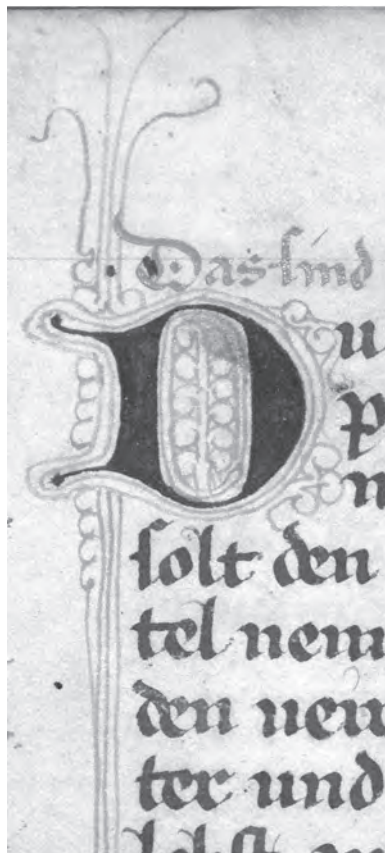 Das sind
Du
p
n
solt den
tel nem
den neu
ter und